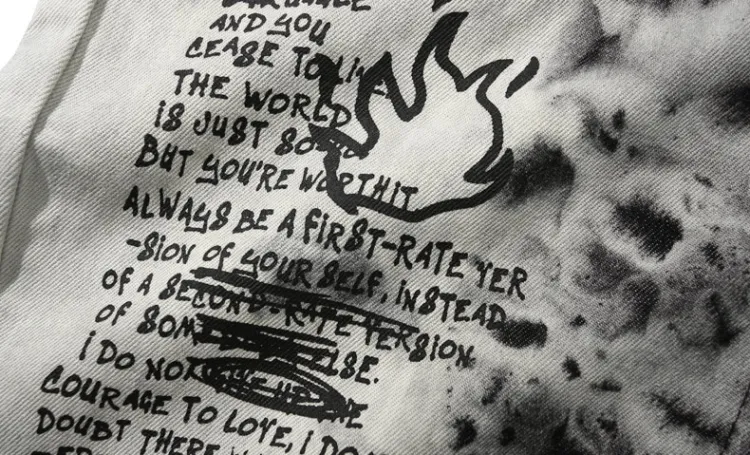 AND YOU
CEASE TO LIVE
THE WORLD
IS JUST SO
BUT YOU'RE WORTHIT
ALWAYS BE A FIRST-RATE VER
-SION OF YOUR SELF, INSTEAD
OF A SECOND-RATE VERSION
OF SOM LSE.
I DO NOT
COURAGE TO LOVE, I DO
DOUBT THERE